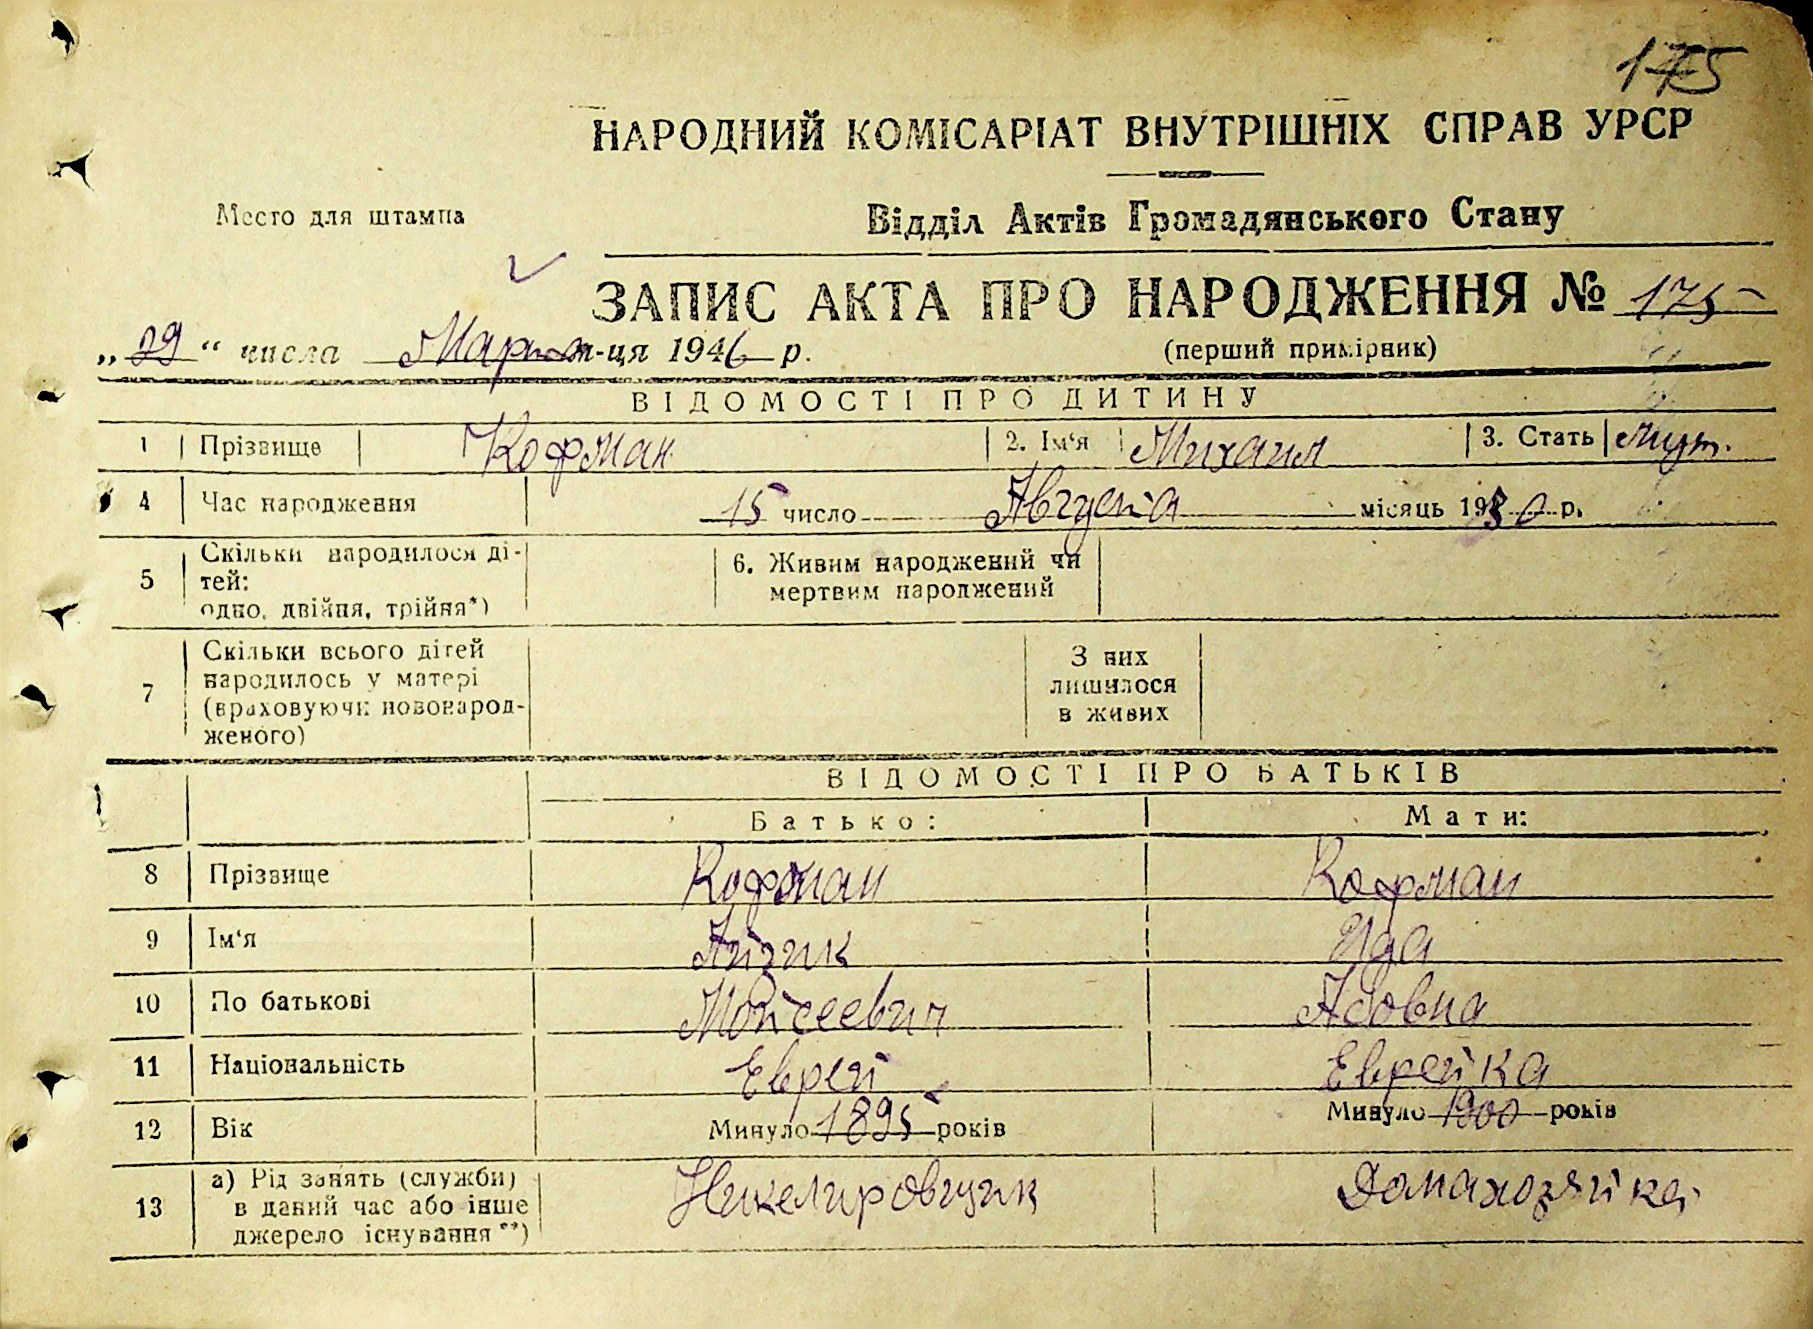 175
НАРОДНИЙ КОМІСАРІАТ ВНУТРІШНІХ СПРАВ УРСР
Место для штампа
Відділ Актів Громадянського Стану
ЗАПИС АКТА ПРО НАРОДЖЕННЯ № 175
„29“ числа Марта м-ця 1946 р.
(перший примірник)
ВІДОМОСТІ ПРО ДИТИНУ
1 Прізвище Кофман 2. Ім‘я Михаил 3. Стать Муж.
4 Час народження 15 число Августа місяць 1930 р.
5 Скільки народилося ді-
тей:
одно, двійня, трійня*)
6. Живим народжений чи
мертвим народжений
7 Скільки всього дітей
народилось у матері
(враховуючи новонарод-
женого)
З них
лишилося
в живих
ВІДОМОСТІ ПРО БАТЬКІВ
Батько: Мати:
8 Прізвище Кофман Кофман
9 Ім‘я Айзик Ида
10 По батькові Мойсеевич Абовна
11 Національність Еврей Еврейка
12 Вік Минуло 1895 років Минуло 1900 років
13 а) Рід занять (служби)
в даний час або інше
джерело існування **)
Никелировщик Домахозяйка